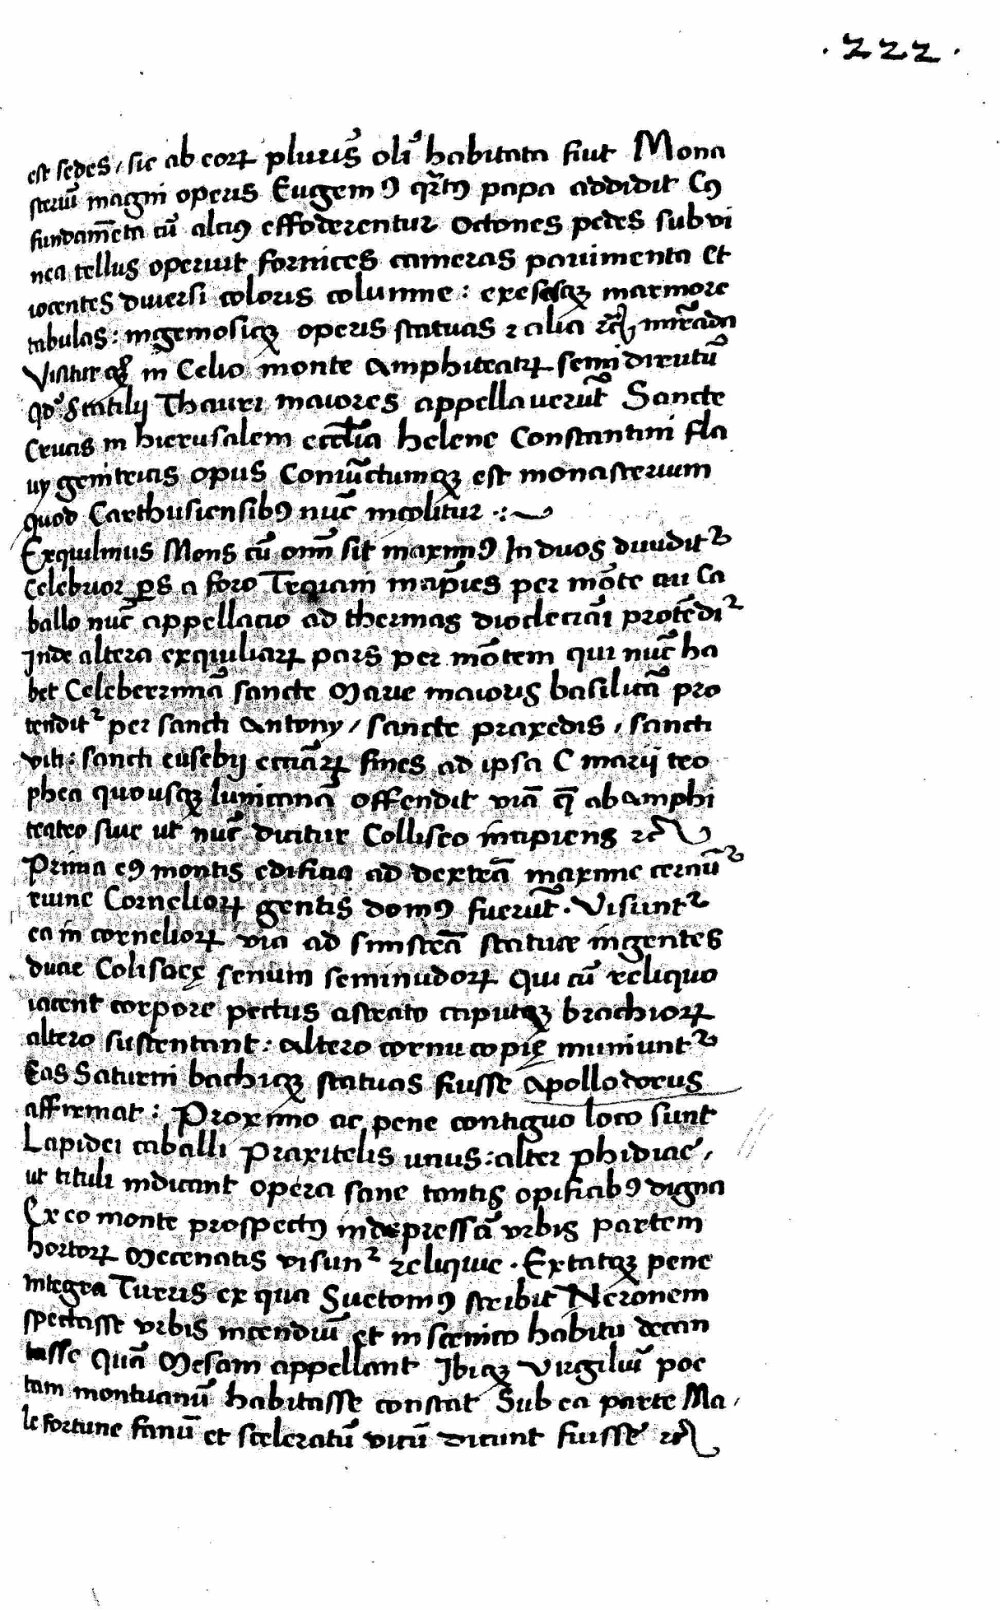 .222.
est sedes / sic ab eoꝝ pluris̄ oli᷒ habitata fiut Mona
steriū magni operis Eugeniꝰ qr̄tꝰ papa addidit Cꝰ
fundam̄eta cū altiꝰ effoderentur octones pedes sub vi
nea tellus operuit fornices cameras pauimenta et
iacentes diuersi coloris columne : exesasqꝫ marmore
tabulas : ingeniosiqꝫ operis statuas ⁊ alia mir̄ada
Visitur in Celio monte Amphiteatꝝ semidirutū
Statilij Thauri maiores appellauerūt Sancte
Crucis in hierusalem eccl̄ia helene Constantini fla
uy genitricis opus Coniūctumqꝫ est monasterium
quod Carthusiensibꝰ nūc incolitur
Exquilinus Mons cū om̄ sit maximꝰ In duos diuidit᷑
Celebrior ꝑs a foro Traiani incipies per mōte cui Ca
ballo nūc appellacio ad thermas dioclecian̄i protēdi᷑
Inde altera exquiliaꝝ pars per mōtem qui nūc ha
bet Celeberrimā sancte Marie maioris basilicā pro
tendit᷑ per sancti Antony / sancte praxedis / sancti
viti : sancti eusebij eccīaꝝ fines ad ipsa C marij tro
phea quousqꝫ lunicanā offendit viā q̄ ab amphi
teatro siue ut nūc dicitur Colliseo incipiens ⁊c̄
Prima eꝰ montis edificia ad dextrā maxime cernūt᷑
ruine Cornelioꝝ gentis domꝰ fuerūt . Visunt᷑
ea in cornelioꝝ via ad sinistrā statue ingentes
due Colisace senum seminudoꝝ Qui cū reliquo
iacent corpore pectus astrato caputqꝫ brachioꝝ
altero sustentant : altero cornucopie muniunt᷑
Eas Saturni bachiqꝫ statuas fuisse Apollodorus
affirmat : Proximo ac pene contiguo loco sunt
Lapidei caballi Praxitelis unus : alter phidiae /
ut tituli indicant opera sane tantis opificibꝰ digna
Ex eo monte prospectꝰ in depressā urbis partem
hortoꝝ Mecenatis visun᷑ reliquie . Extatqꝫ pene
integra Turris ex qua Suetoniꝰ scribit Neronem
spectasse urbis incendiū et in scenico habitu decan
tasse Quā Mesam appellant Ibiqꝫ Virgiliū poe
tam montuanū habitasse constat Sub ea parte Ma /
le fortune fanū et sceleratū vicū dicunt fuisse ⁊c̄